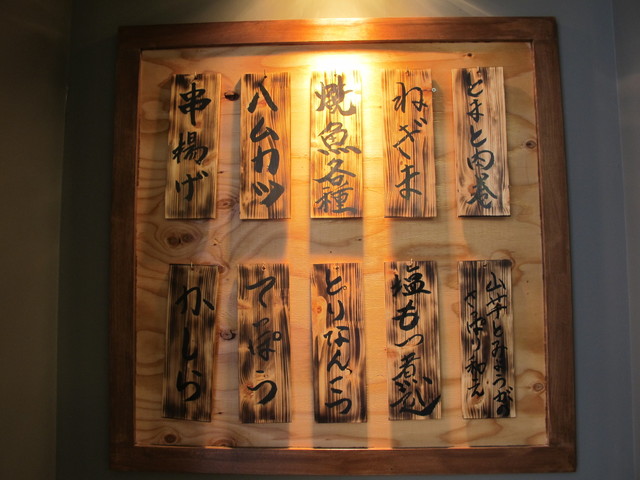 とまと肉巻
ねぎま
焼魚各種
ハムカツ
串揚げ
山芋とみょうがの
さっぱり和え
塩もつ煮込
とりなんこつ
てっぽう
かしら